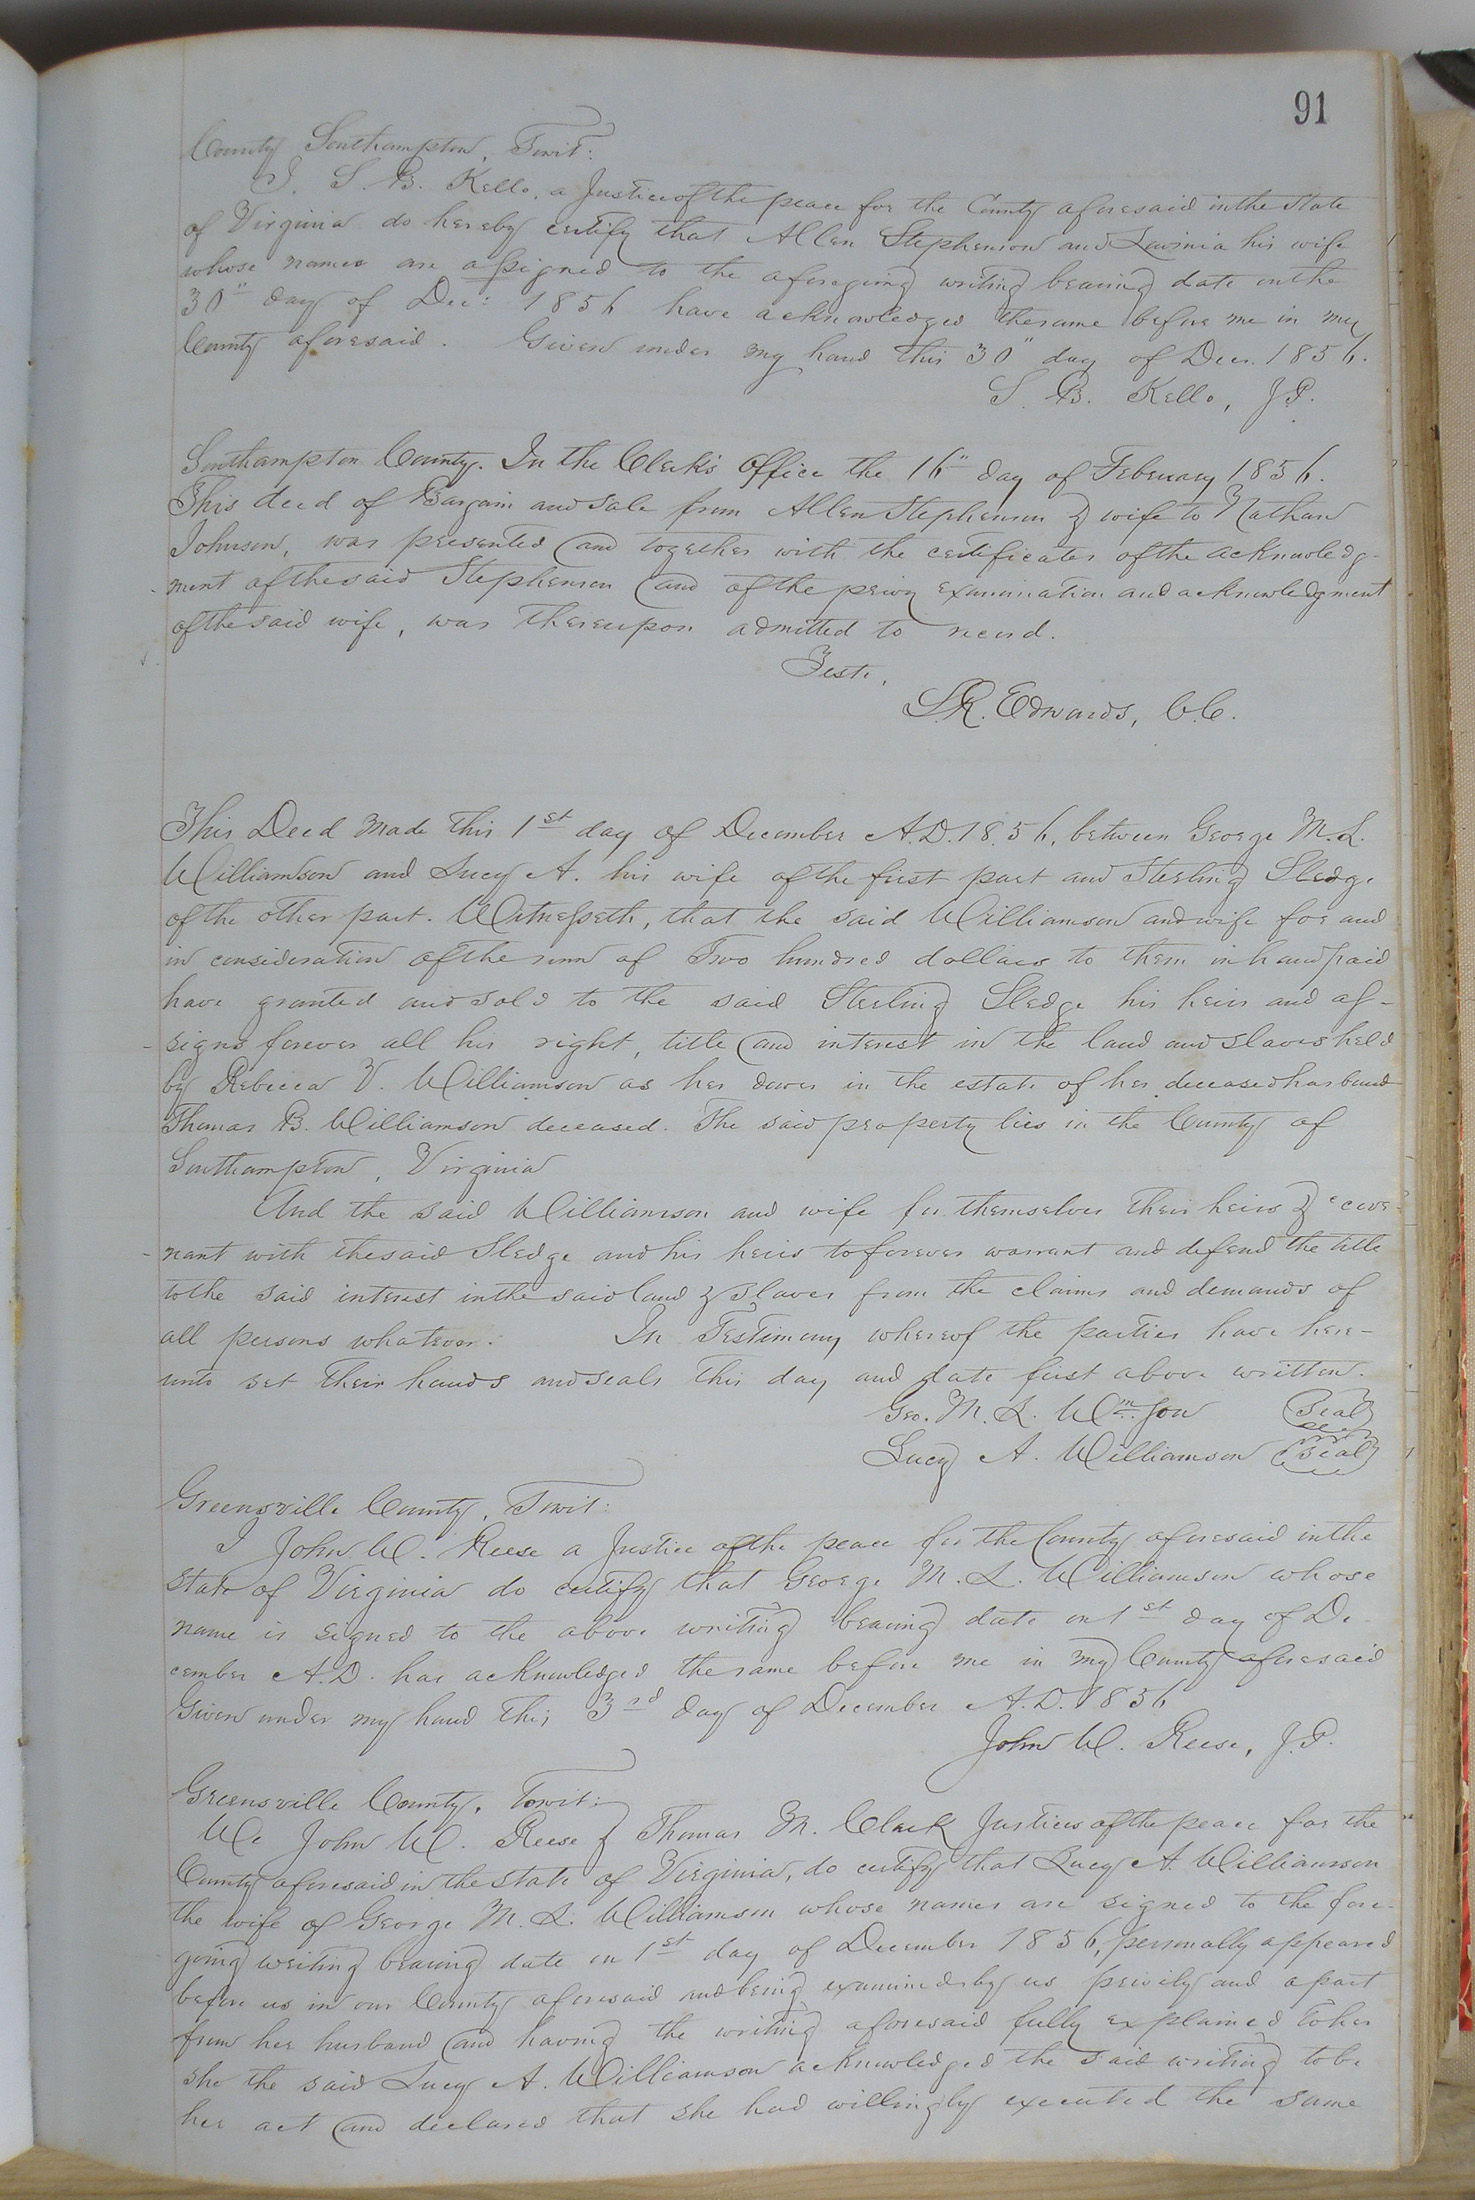 91
County Southampton, Towit:
I, S. B. Kello, a Justice of the peace for the County aforesaid in the State
of Virginia do hereby certify that Allen Stephenson and Lavinia his wife
whose names are assigned to the aforegoing writing bearing date on the
30" day of Dec: 1856 have acknowledged the same before me in my
County aforesaid. Given under my hand this 30" day of Decr. 1856.
S. B. Kello, J.P.
Southampton County. In the Clerk's Office the 16" day of February 1856.
This deed of Bargain and Sale from Allen Stephenson & wife to Nathan
Johnson, was presented and together with the certificates of the acknowledg-
ment of the said Stephenson and of the privy examination and acknowledgment
of the said wife, was thereupon admitted to record.
Teste,
L.R. Edwards, C.C.
This Deed made this 1st day of December A.D. 1856, between George M. L.
Williamson and Lucy A. his wife of the first part and Sterling Sledge
of the other part. Witnesseth, that the said Williamson and wife for and
in consideration of the sum of Two hundred dollars to them in hand paid
have granted and sold to the said Sterling Sledge his heirs and as-
signs forever all his right, title and interest in the land and slaves held
by Rebecca V. Williamson as her dower in the estate of her deceased husband
Thomas B. Williamson deceased. The said property lies in the County of
Southampton, Virginia
And the said Williamson and wife for themselves their heirs & c cove-
nant with the said Sledge and his heirs to forever warrant and defend the title
to the said interest in the said land & slaves from the claims and demands of
all persons whatever. In Testimony whereof the parties have here-
unto set their hands and seals this day and date first above written.
Geo. M. L. Wm.son (Seal)
Lucy A. Williamson (Seal)
Greensville County, Towit:
I John W. Reese a Justice of the peace for the County aforesaid in the
State of Virginia do certify that George M. L. Williamson whose
name is signed to the above writing bearing date on 1st day of De-
cember A.D. has acknowledged the same before me in my County aforesaid
Given under my hand this 3rd day of December A.D. 1856
John W. Reese, J.P.
Greensville County, Towit:
We John W. Reese & Thomas M. Clark Justices of the peace for the
County aforesaid in the State of Virginia, do certify that Lucy A. Williamson
the wife of George M. L. Williamson whose names are signed to the fore-
going writing bearing date on 1st day of December 1856, personally appeared
before us in our County aforesaid and being examined by us privily and apart
from her husband and having the writing aforesaid fully explained to her
she the said Lucy A. Williamson acknowledged the said writing to be
her act and declared that she had willingly executed the same